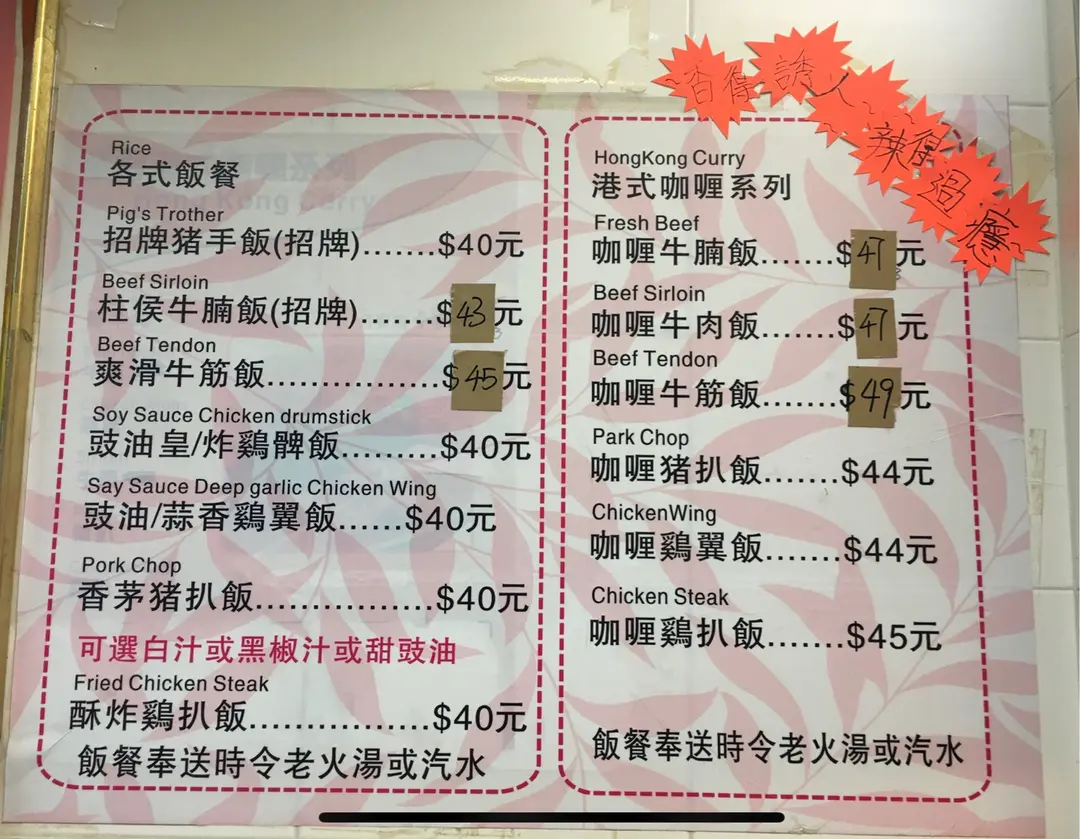 香得誘人
辣得過癮
Rice
各式飯餐
Pig's Trother
招牌猪手飯(招牌).......$40元
Beef Sirloin
柱侯牛腩飯(招牌).......$43元
Beef Tendon
爽滑牛筋飯................$45元
Soy Sauce Chicken drumstick
豉油皇/炸鷄髀飯.........$40元
Say Sauce Deep garlic Chicken Wing
豉油/蒜香鷄翼飯......$40元
Pork Chop
香茅猪扒飯................$40元
可選白汁或黑椒汁或甜豉油
Fried Chicken Steak
酥炸鷄扒飯................$40元
飯餐奉送時令老火湯或汽水
HongKong Curry
港式咖喱系列
Fresh Beef
咖喱牛腩飯.......$47元
Beef Sirloin
咖喱牛肉飯.......$47元
Beef Tendon
咖喱牛筋飯.......$49元
Park Chop
咖喱猪扒飯.......$44元
ChickenWing
咖喱鷄翼飯.......$44元
Chicken Steak
咖喱鷄扒飯.......$45元
飯餐奉送時令老火湯或汽水